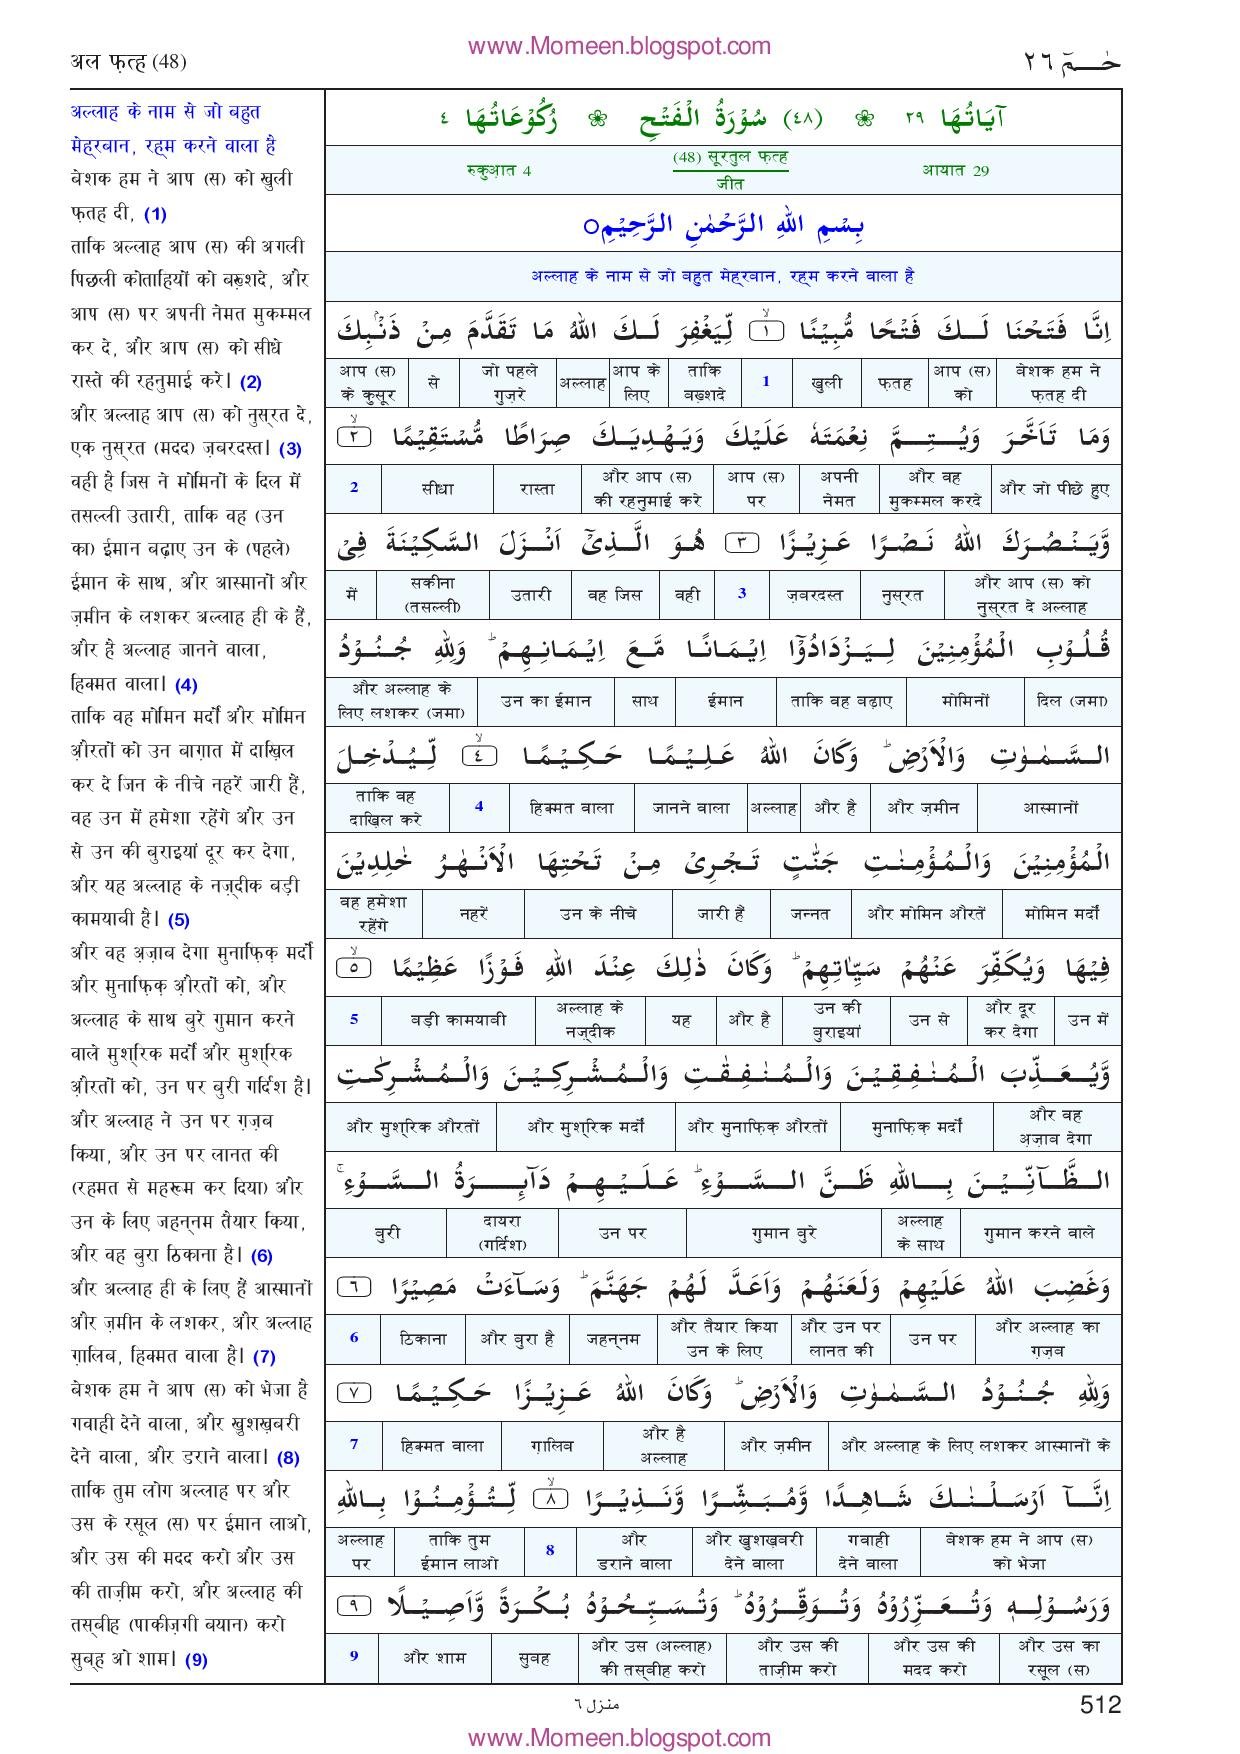 www.Momeen.blogspot.com
अल फ़त्ह (48)
حٰـــمٓ ٢٦
अल्लाह के नाम से जो बहुत
मेह्‌रबान, रह्‌म करने वाला है
बेशक हम ने आप (स) को खुली
फ़तह दी, (1)
ताकि अल्लाह आप (स) की अगली
पिछली कोताहियों को बख़्शदे, और
आप (स) पर अपनी नेमत मुकम्मल
कर दे, और आप (स) को सीधे
रास्ते की रहनुमाई करे। (2)
और अल्लाह आप (स) को नुस्‌रत दे,
एक नुस्‌रत (मदद) ज़बरदस्त। (3)
वही है जिस ने मोमिनों के दिल में
तसल्ली उतारी, ताकि वह (उन
का) ईमान बढ़ाए उन के (पहले)
ईमान के साथ, और आस्मानों और
ज़मीन के लशकर अल्लाह ही के हैं,
और है अल्लाह जानने वाला,
हिक्मत वाला। (4)
ताकि वह मोमिन मर्दों और मोमिन
औ़रतों को उन बाग़ात में दाख़िल
कर दे जिन के नीचे नहरें जारी हैं,
वह उन में हमेशा रहेंगे और उन
से उन की बुराइयां दूर कर देगा,
और यह अल्लाह के नज़्‌दीक बड़ी
कामयाबी है। (5)
और वह अ़ज़ाब देगा मुनाफ़िक़ मर्दों
और मुनाफ़िक़ औ़रतों को, और
अल्लाह के साथ बुरे गुमान करने
वाले मुश्‌रिक मर्दों और मुश्‌रिक
औ़रतों को, उन पर बुरी गर्दिश है।
और अल्लाह ने उन पर ग़ज़ब
किया, और उन पर लानत की
(रहमत से महरूम कर दिया) और
उन के लिए जहन्‌नम तैयार किया,
और वह बुरा ठिकाना है। (6)
और अल्लाह ही के लिए हैं आस्मानों
और ज़मीन के लशकर, और अल्लाह
ग़ालिब, हिक्मत वाला है। (7)
बेशक हम ने आप (स) को भेजा है
गवाही देने वाला, और खुशख़बरी
देने वाला, और डराने वाला। (8)
ताकि तुम लोग अल्लाह पर और
उस के रसूल (स) पर ईमान लाओ,
और उस की मदद करो और उस
की ताज़ीम करो, और अल्लाह की
तस्‌बीह (पाकीज़गी बयान) करो
सुब्‌ह ओ शाम। (9)
آيَاتُهَا ٢٩ ❀ (٤٨) سُوْرَةُ الْفَتْحِ ❀ رُكُوْعَاتُهَا ٤
रुकुआ़त 4 (48) सूरतुल फ़त्ह आयात 29
जीत
بِسْمِ اللهِ الرَّحْمٰنِ الرَّحِيْمِ○
अल्लाह के नाम से जो बहुत मेह्‌रबान, रह्‌म करने वाला है
اِنَّا فَتَحْنَا لَــكَ فَتْحًا مُّبِيْنًا ۙ ١ لِّيَغْفِرَ لَــكَ اللهُ مَا تَقَدَّمَ مِـنْ ذَنْۢبِكَ
आप (स) के कुसूर से जो पहले गुज़रे अल्लाह आप के लिए ताकि बख़्शदे 1 खुली फ़तह आप (स) को बेशक हम ने फ़तह दी
وَمَا تَاَخَّـرَ وَيُـــتِـــمَّ نِعْمَتَهٗ عَلَيْكَ وَيَـهْـدِيَــكَ صِرَاطًا مُّسْتَقِيْمًا ۙ ٢
2 सीधा रास्ता और आप (स) की रहनुमाई करे आप (स) पर अपनी नेमत और वह मुकम्मल करदे और जो पीछे हुए
وَّيَـنْـصُـرَكَ اللهُ نَـصْـرًا عَـزِيْـزًا ٣ هُـوَ الَّـذِيْٓ اَنْـزَلَ السَّكِيْنَةَ فِيْ
में सकीना (तसल्ली) उतारी वह जिस वही 3 ज़बरदस्त नुस्‌रत और आप (स) को नुस्‌रत दे अल्लाह
قُـلُـوْبِ الْمُؤْمِنِيْنَ لِـيَـزْدَادُوْٓا اِيْـمَـانًـا مَّـعَ اِيْـمَـانِـهِـمْ ؕ وَلِلّٰهِ جُـنُـوْدُ
और अल्लाह के लिए लशकर (जमा) उन का ईमान साथ ईमान ताकि वह बढ़ाए मोमिनों दिल (जमा)
الـسَّـمٰـوٰتِ وَالْاَرْضِ ؕ وَكَانَ اللهُ عَـلِـيْـمًـا حَـكِـيْـمًـا ۙ ٤ لِّـيُـدْخِـلَ
ताकि वह दाख़िल करे 4 हिक्मत वाला जानने वाला अल्लाह और है और ज़मीन आस्मानों
الْمُؤْمِنِيْنَ وَالْـمُـؤْمِـنٰـتِ جَنّٰتٍ تَـجْـرِيْ مِـنْ تَـحْتِهَا الْاَنْـهٰـرُ خٰلِدِيْنَ
वह हमेशा रहेंगे नहरें उन के नीचे जारी हैं जन्नत और मोमिन औरतें मोमिन मर्दों
فِيْهَا وَيُكَفِّرَ عَنْهُمْ سَيِّاٰتِهِمْ ؕ وَكَانَ ذٰلِكَ عِنْدَ اللهِ فَـوْزًا عَظِيْمًا ۙ ٥
5 बड़ी कामयाबी अल्लाह के नज़्‌दीक यह और है उन की बुराइयां उन से और दूर कर देगा उन में
وَّيُـعَـذِّبَ الْـمُـنٰـفِـقِـيْـنَ وَالْـمُـنٰـفِـقٰـتِ وَالْـمُـشْـرِكِـيْـنَ وَالْـمُـشْـرِكٰـتِ
और मुश्‌रिक औरतों और मुश्‌रिक मर्दों और मुनाफ़िक़ औरतों मुनाफ़िक़ मर्दों और वह अ़ज़ाब देगा
الـظَّـآنِّـيْـنَ بِـاللهِ ظَـنَّ الـسَّـوْءِ ؕ عَـلَـيْـهِـمْ دَآئِـرَةُ الـسَّـوْءِ ۚ
बुरी दायरा (गर्दिश) उन पर गुमान बुरे अल्लाह के साथ गुमान करने वाले
وَغَضِبَ اللهُ عَلَيْهِمْ وَلَعَنَهُمْ وَاَعَدَّ لَهُمْ جَهَنَّمَ ؕ وَسَـآءَتْ مَصِيْرًا ٦
6 ठिकाना और बुरा है जहन्‌नम और तैयार किया उन के लिए और उन पर लानत की उन पर और अल्लाह का ग़ज़ब
وَلِلّٰهِ جُـنُـوْدُ الـسَّـمٰـوٰتِ وَالْاَرْضِ ؕ وَكَانَ اللهُ عَـزِيْـزًا حَـكِـيْـمًـا ٧
7 हिक्मत वाला ग़ालिब और है अल्लाह और ज़मीन और अल्लाह के लिए लशकर आस्मानों के
اِنَّـآ اَرْسَـلْـنٰـكَ شَـاهِـدًا وَّمُـبَـشِّـرًا وَّنَـذِيْـرًا ۙ ٨ لِّـتُـؤْمِـنُـوْا بِـاللهِ
अल्लाह पर ताकि तुम ईमान लाओ 8 और डराने वाला और खुशख़बरी देने वाला गवाही देने वाला बेशक हम ने आप (स) को भेजा
وَرَسُـوْلِـهٖ وَتُـعَـزِّرُوْهُ وَتُـوَقِّـرُوْهُ ؕ وَتُـسَـبِّـحُـوْهُ بُـكْـرَةً وَّاَصِـيْـلًا ٩
9 और शाम सुबह और उस (अल्लाह) की तस्‌बीह करो और उस की ताज़ीम करो और उस की मदद करो और उस का रसूल (स)
منزل ٦
512
www.Momeen.blogspot.com